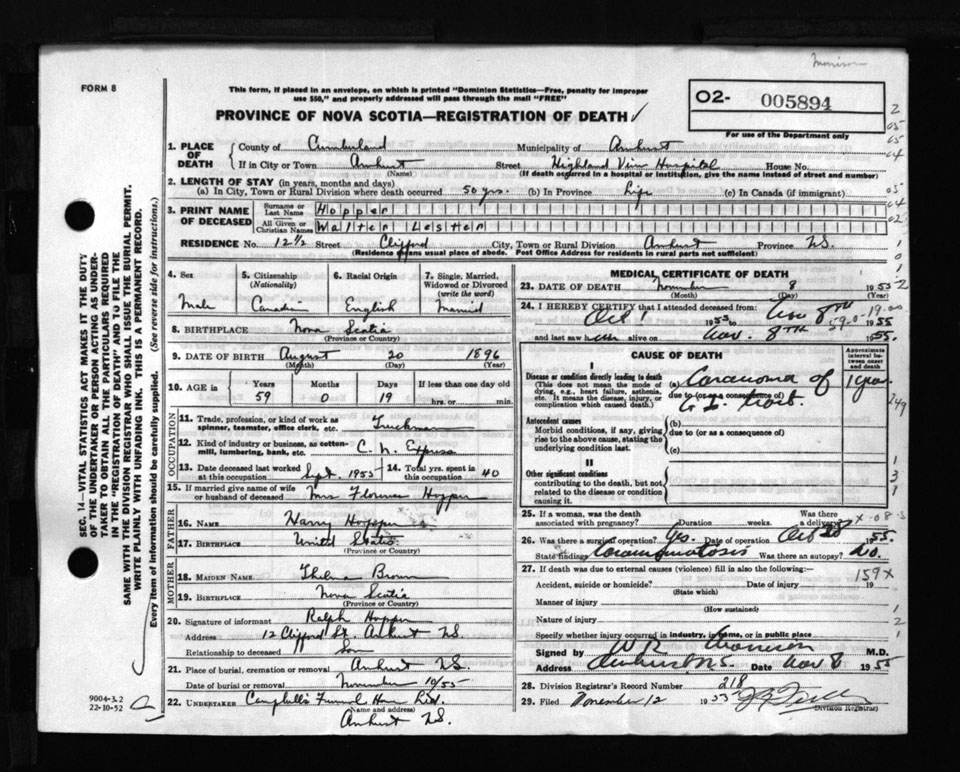 Morrison
FORM 8
This form, if placed in an envelope, on which is printed "Dominion Statistics—Free, penalty for improper
use $50," and properly addressed will pass through the mail "FREE"
PROVINCE OF NOVA SCOTIA—REGISTRATION OF DEATH
O2- 005894
For use of the Department only
1. PLACE OF DEATH County of Cumberland Municipality of Amherst
If in City or Town Amherst Street Highland View Hospital House No.
(Name) (If death occurred in a hospital or institution, give the name instead of street and number)
2. LENGTH OF STAY (in years, months and days)
(a) In City, Town or Rural Division where death occurred 50 yrs. (b) In Province Life (c) In Canada (if immigrant)
3. PRINT NAME OF DECEASED Surname or Last Name Hopper
All Given or Christian Names Walter Lester
RESIDENCE No. 12 1/2 Street Clifford City, Town or Rural Division Amherst Province N.S.
(Residence means usual place of abode. Post Office Address for residents in rural parts not sufficient)
4. Sex Male
5. Citizenship (Nationality) Canadian
6. Racial Origin English
7. Single, Married, Widowed or Divorced (write the word) Married
8. BIRTHPLACE Nova Scotia
(Province or Country)
9. DATE OF BIRTH August 20 1896
(Month) (Day) (Year)
10. AGE in Years Months Days If less than one day old
59 0 19 hrs. or min.
OCCUPATION
11. Trade, profession, or kind of work as spinner, teamster, office clerk, etc. Truckman
12. Kind of industry or business, as cotton-mill, lumbering, bank, etc. C. N. Express
13. Date deceased last worked at this occupation Sept. 1955 14. Total yrs. spent in this occupation 40
15. If married give name of wife or husband of deceased Mrs Florence Hopper
FATHER
16. NAME Harry Hopper
17. BIRTHPLACE United States
(Province or Country)
MOTHER
18. MAIDEN NAME Thelma Brown
19. BIRTHPLACE Nova Scotia
(Province or Country)
20. Signature of informant Ralph Hopper
Address 12 Clifford St. Amherst N.S.
Relationship to deceased Son
21. Place of burial, cremation or removal Amherst N.S.
Date of burial or removal November 10/55
22. UNDERTAKER Campbell's Funeral Home Ltd.
(Name and address)
Amherst N.S.
MEDICAL CERTIFICATE OF DEATH
23. DATE OF DEATH November 8 1955
(Month) (Day) (Year)
24. I HEREBY CERTIFY that I attended deceased from:
Oct 1955 to Nov 8TH 1955
and last saw him alive on Nov. 8TH 1955.
CAUSE OF DEATH
Approximate interval between onset and death
I
Disease or condition directly leading to death (a) Carcinoma of 1 year
(This does not mean the mode of dying, e.g., heart failure, asthenia, etc. It means the disease, injury, or complication which caused death.)
due to (or as a consequence of) G.I. tract.
Antecedent causes (b)
Morbid conditions, if any, giving rise to the above cause, stating the underlying condition last.
due to (or as a consequence of)
(c)
II
Other significant conditions
contributing to the death, but not related to the disease or condition causing it.
25. If a woman, was the death associated with pregnancy? Duration weeks. Was there a delivery?
26. Was there a surgical operation? Yes. Date of operation Oct 20 1955.
State findings Carcinomatosis Was there an autopsy? No.
27. If death was due to external causes (violence) fill in also the following:—
Accident, suicide or homicide? Date of injury 19
(State which)
Manner of injury
(How sustained)
Nature of injury
Specify whether injury occurred in industry, in home, or in public place
Signed by W R Morrison M.D.
Address Amherst N.S. Date Nov 8 1955
28. Division Registrar's Record Number 218
29. Filed November 12 1955
(Division Registrar)
SEC. 14—VITAL STATISTICS ACT MAKES IT THE DUTY
OF THE UNDERTAKER OR PERSON ACTING AS UNDERTAKER TO OBTAIN ALL THE PARTICULARS REQUIRED
IN THE "REGISTRATION OF DEATH" AND TO FILE THE
SAME WITH THE DIVISION REGISTRAR WHO SHALL ISSUE THE BURIAL PERMIT.
WRITE PLAINLY WITH UNFADING INK. THIS IS A PERMANENT RECORD.
Every item of information should be carefully supplied. (See reverse side for instructions.)
9004-3.2
22-10-52
159X
249